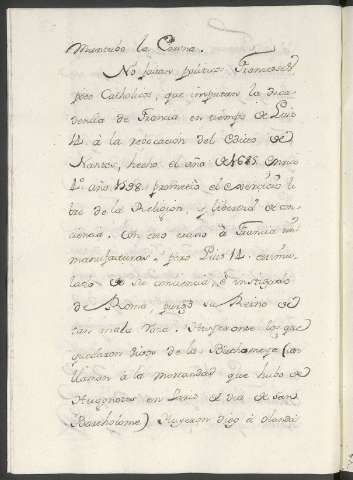 la Corona.
No faltan politicos Franceses
poco Catholicos, que imputan la deca
dencia de Francia en tiempo de Luis
14 à la revocacion del Edicto de
Nantes, hecho el año de 1685. Enrico
4.º año 1598 prometió el exercicio li
bre de la Religion, y libertad de con
ciencia. Con eso crecio à Francia
manufacturas; pero Luis 14.
de su conciencia, è instigado
de Roma, purgó su Reino de
tan mala Vena. los que
quedaron digo de la (asi
llaman à la mortandad que hubo de
Hugonotes en Paris el dia de San
Bartholomè) Huyeron digo à Olanda